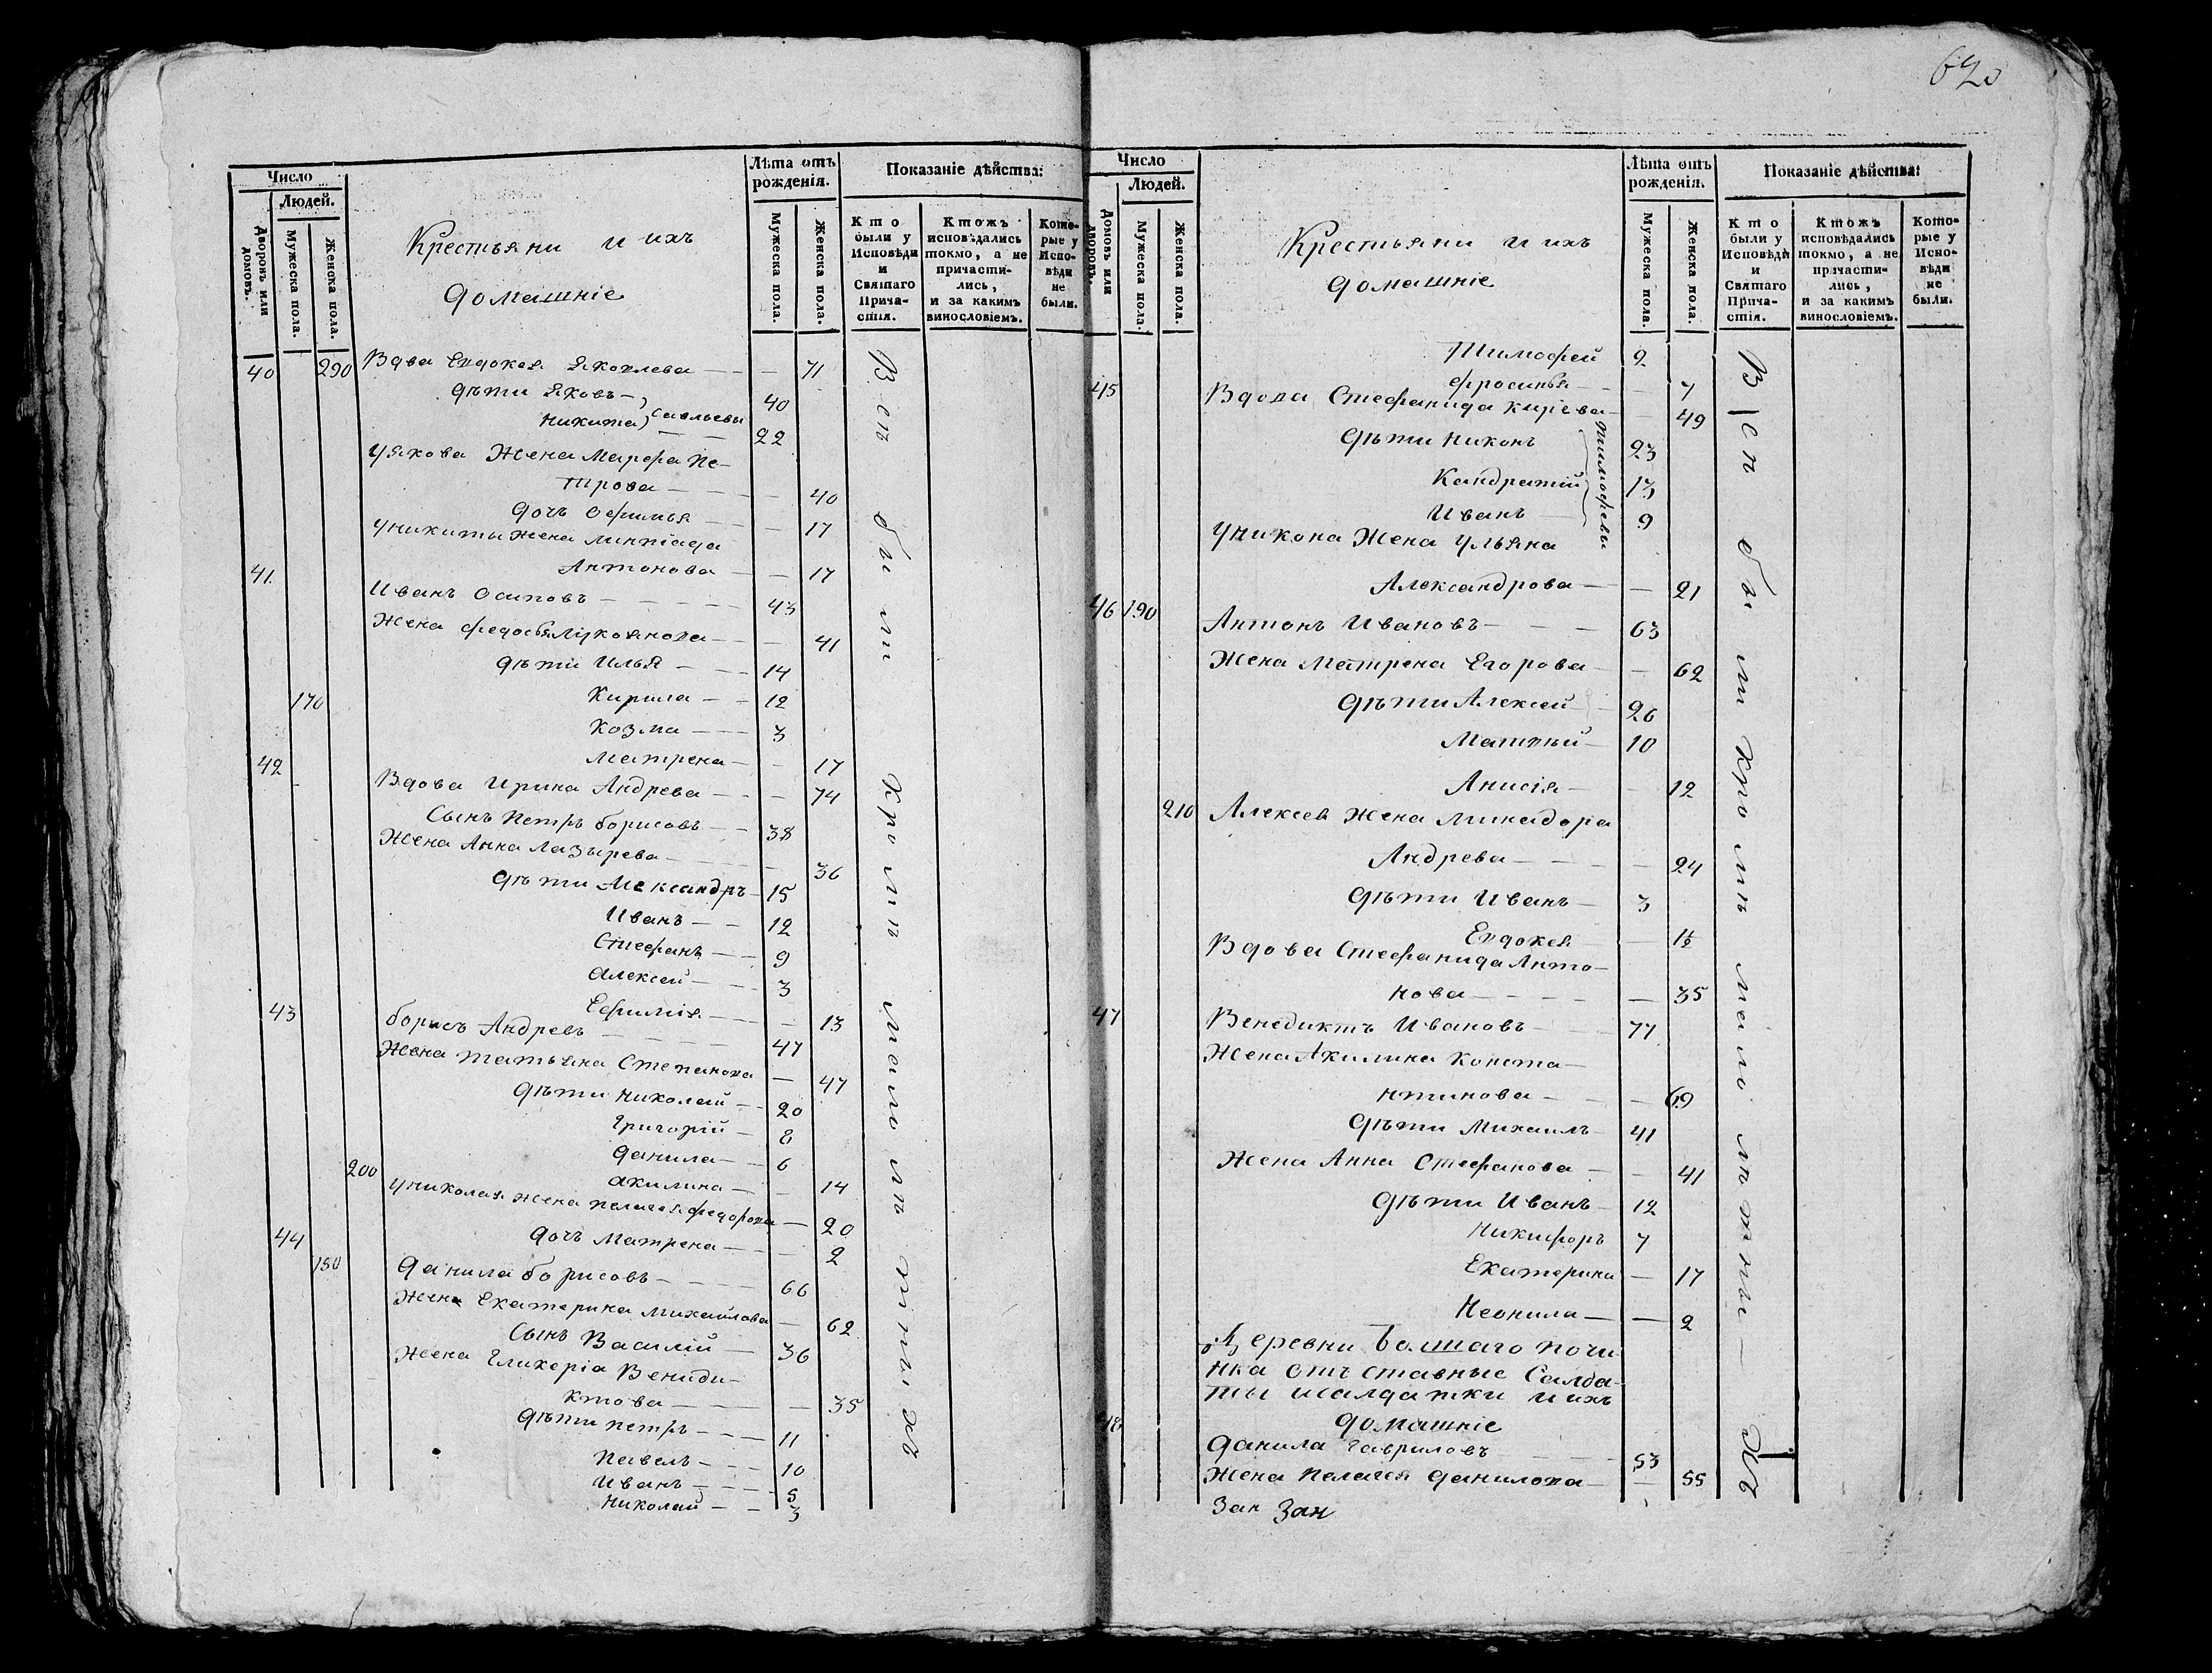 620
Число
Лѣта отъ рожденія.
Показаніе дѣйства:
Людей.
Дворовъ или домовъ.
Мужеска пола.
Женска пола.
Крестьяни и ихъ
домашніе
Мужеска пола.
Женска пола.
Кто были у Исповѣди и Святаго Прича- стія.
Ктожъ исповѣдались токмо, а не причасти- лись, и за какимъ винословіемъ.
Кото- рые у Испо- вѣди не были.
40 290 Вдва Евдокея Яковлева — — 71
дѣти Яковъ — 40
Никита Савльевы — 22
У Якова Жена Марфа Пе-
трова — — 40
дочь Офимья — — 17
У Никиты жена
Антонова — — 17
41. Иванъ Осиповъ — 43
Жена Федосья Лукоянова — — 41
дѣти Илья — 14
170 Кирила — 12
Козма — 3
Матрена — — 17
42 Вдова Ирина Андрева — — 74
Сынъ Петръ Борисовъ — 38
Жена Анна Лазырева — — 36
дѣти Александръ — 15
Иванъ — 12
Стефанъ — 9
Алексей — 3
Ефимія — — 13
43 Борисъ Андревъ — 47
Жена Татьяна Степанова — 47
дѣти Николай — 20
Григорій — 8
Данила — 6
200 Акилина — — 14
У Николая жена Пелагея Федорова — 20
дочь Матрена — — 2
44 180 Данила Борисовъ — 66
Жена Екатерина Михайлова — 62
Сынъ Василій — 36
Жена Гликеріа Вениди-
ктова — — 35
дѣти Петръ — 11
Павелъ — 10
Иванъ — 5
Николай — 3
Всѣ были кромѣ малолѣтныхъ
Число
Лѣта отъ рожденія.
Показаніе дѣйства:
Людей.
Домовъ или дворовъ.
Мужеска пола.
Женска пола.
Крестьяни и ихъ
домашніе
Мужеска пола.
Женска пола.
Кто были у Исповѣди и Святаго Прича- стія.
Ктожъ исповѣдались токмо, а не причасти- лись, и за какимъ винословіемъ.
Кото- рые у Испо- вѣди не были.
Тимофей 2
Фросинья — 7
45 Вдова Стефанида Кирева — — 49
дѣти Никонъ 23
Кандратій 13
Иванъ 9
Тимофевы
У Никона Жена Ульяна
Александрова — — 21
46 190 Антонъ Ивановъ — 63
Жена Матрена Егорова — — 62
дѣти Алексей — 26
Матвѣй — 10
Анисія — 12
210 Алексея Жена Минадора
Андрева — — 24
дѣти Иванъ — 3
Евдокея — 1½
Вдова Стефанида Анто-
нова — — 35
47 Венедиктъ Ивановъ — 77
Жена Акилина Конста-
нтинова — — 69
дѣти Михаилъ 41
Жена Анна Стефанова — — 41
дѣти Иванъ — 12
Никифоръ 7
Екатерина — 17
Неонила — — 2
Деревни Болшаго Почи-
нка отъставные Салда-
ты исалдатки и ихъ
48 домашніе
Данила Гавриловъ 53
Жена Пелагея Данилова — — 55
Зан Зан
Всѣ были кромѣ малолѣтныхъ